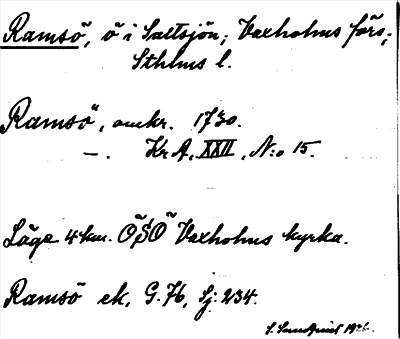 Ramsö, ö i Saltsjön; Vaxholms förs;
Sthlms l.
Ramsö, omkr. 1730.
—. Kr A, XXII, N:o 15.
Läge 4 km. ÖSÖ Vaxholms kyrka.
Ramsö ek, G. 76, Sj: 234.
S. Sundqvist 1926.